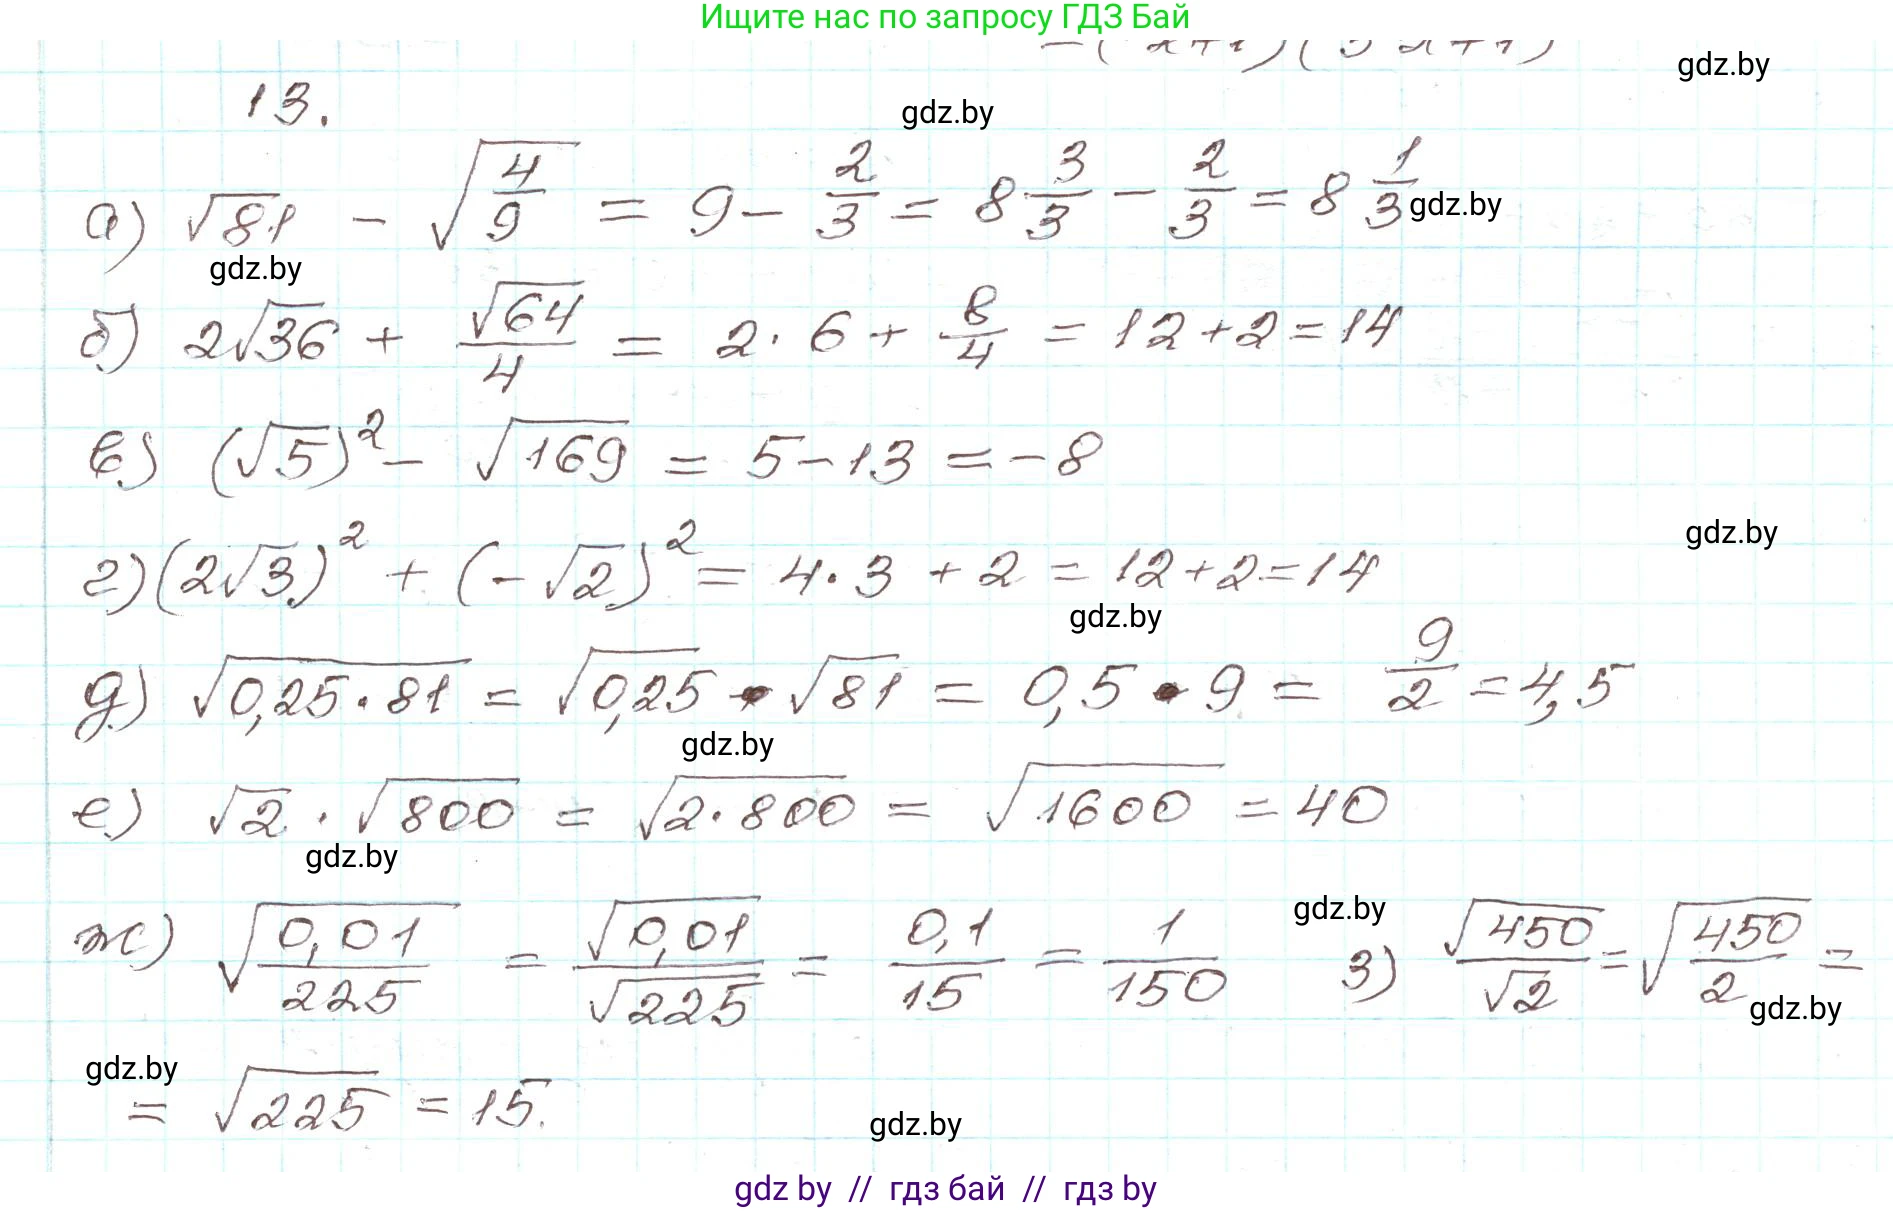 Ищите нас по запросу ГДЗ Бай
gdz.by
13.
gdz.by
а) √81 − √(4/9) = 9 − 2/3 = 8 3/3 − 2/3 = 8 1/3
gdz.by
gdz.by
б) 2√36 + √64/4 = 2 · 6 + 8/4 = 12 + 2 = 14
в) (√5)² − √169 = 5 − 13 = −8
gdz.by
г) (2√3)² + (−√2)² = 4 · 3 + 2 = 12 + 2 = 14
gdz.by
д) √(0,25 · 81) = √0,25 · √81 = 0,5 · 9 = 9/2 = 4,5
gdz.by
е) √2 · √800 = √(2 · 800) = √1600 = 40
gdz.by
ж) √(0,01/225) = √0,01/√225 = 0,1/15 = 1/150
gdz.by
з) √450/√2 = √(450/2) =
gdz.by
gdz.by
= √225 = 15.
gdz.by
gdz by // гдз бай // гдз by